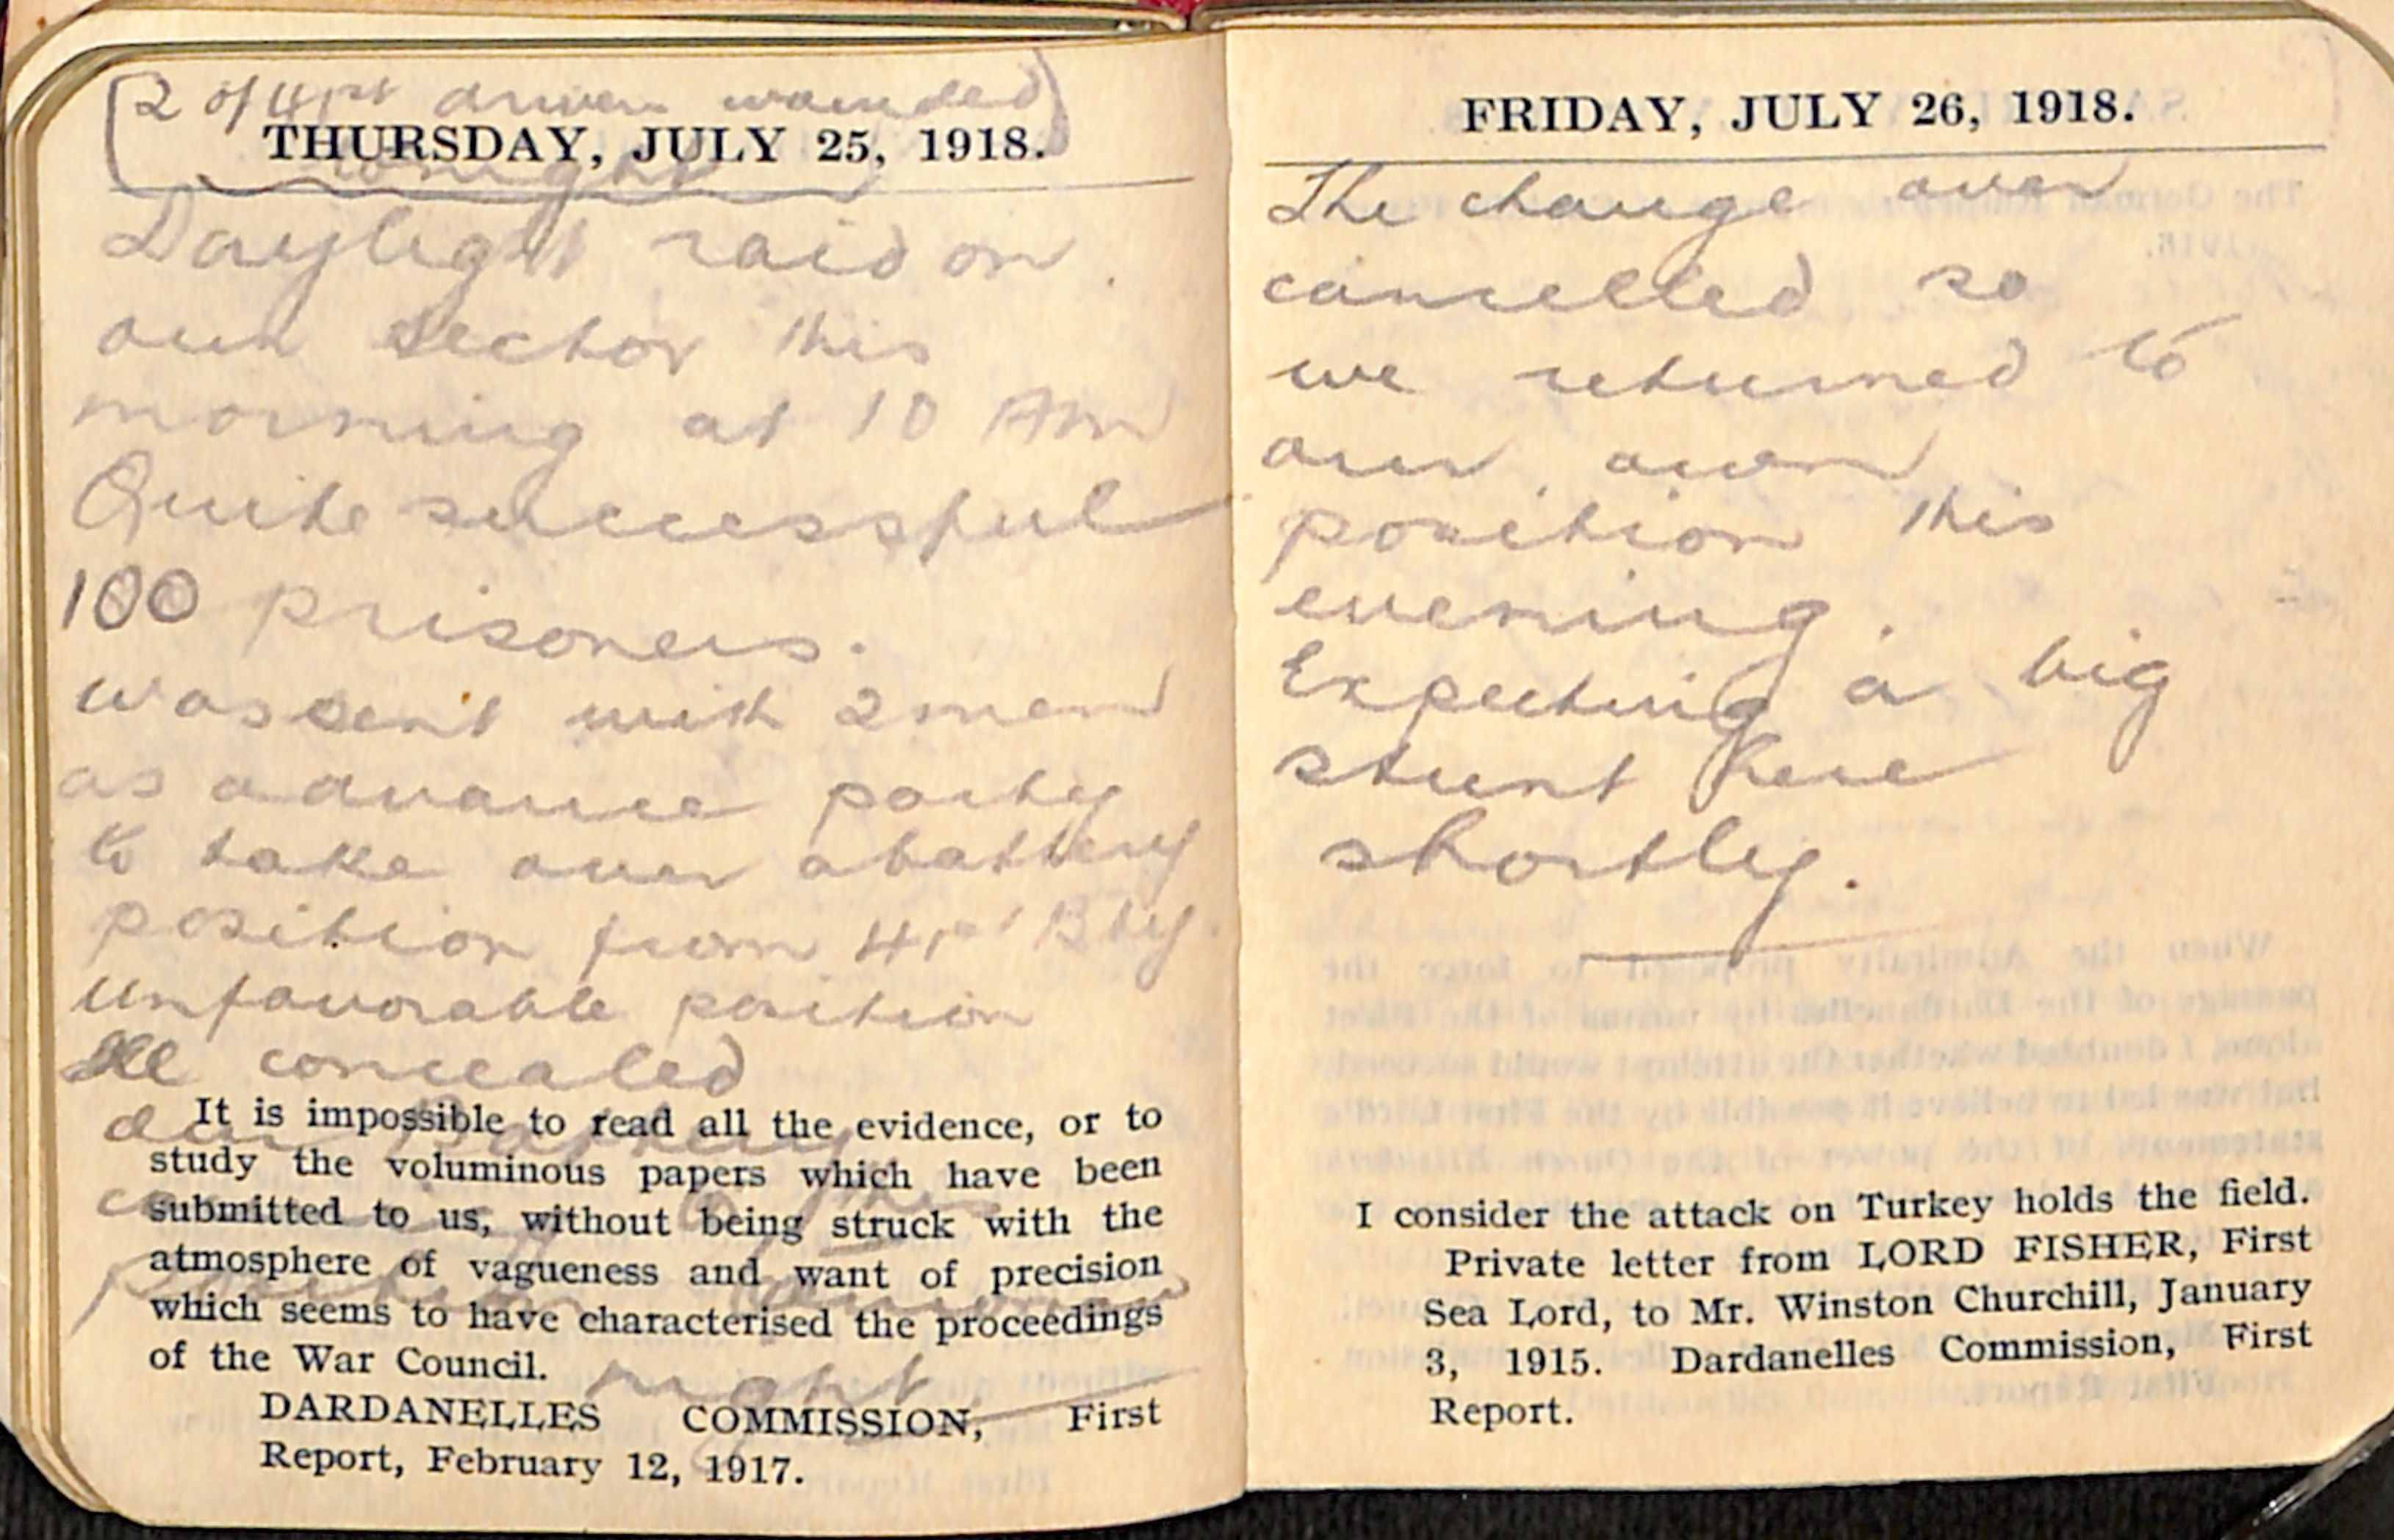 2 of 41st drivers wounded
THURSDAY, JULY 25, 1918.
tonight
Daylight raid on
our sector this
morning at 10 AM
Quite successful
100 prisoners.
was sent with 2 men
as advance party
to take over a battery
position from 41st Bty.
unfavorable position
Ill concealed
It is impossible to read all the evidence, or to
study the voluminous papers which have been
submitted to us, without being struck with the
atmosphere of vagueness and want of precision
which seems to have characterised the proceedings
of the War Council.
night
DARDANELLES COMMISSION, First
Report, February 12, 1917.
FRIDAY, JULY 26, 1918.
The change over
cancelled so
we returned to
our own
position this
evening.
Expecting a big
stunt here
shortly.
I consider the attack on Turkey holds the field.
Private letter from LORD FISHER, First
Sea Lord, to Mr. Winston Churchill, January
3, 1915. Dardanelles Commission, First
Report.